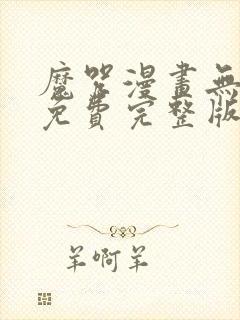 魔咒漫畫無
免費完整版
羊啊羊